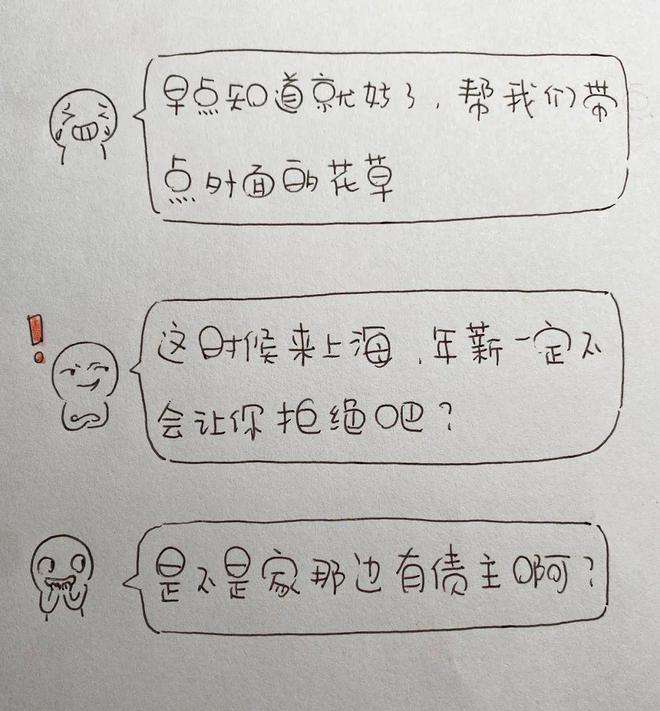 早点知道就好了，帮我们带
点外面的花草
!
这时候来上海，年薪一定不
会让你拒绝吧？
是不是家那边有债主啊？